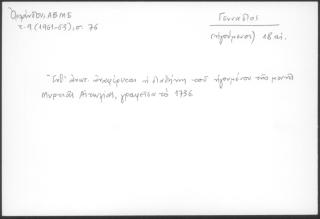 Ὀρλάνδος, ΑΒΜΕ
τ. 9 (1961-63), σ. 76
Γεννάδιος
(ηγούμενος) 18 αι.
ἀναφέρεται ἡ διαθήκη τοῦ ἡγουμένου τῆς μονῆς
Μυρτιᾶς Αἰτωλίας, γραφεῖσα τὸ 1736